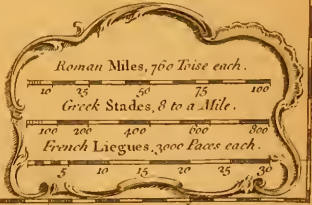 Roman Miles, 760 Toise each.
10 25 50 75 100
Greek Stades, 8 to a Mile.
100 200 400 600 800
French Liegues, 3000 Paces each.
5 10 15 20 25 30